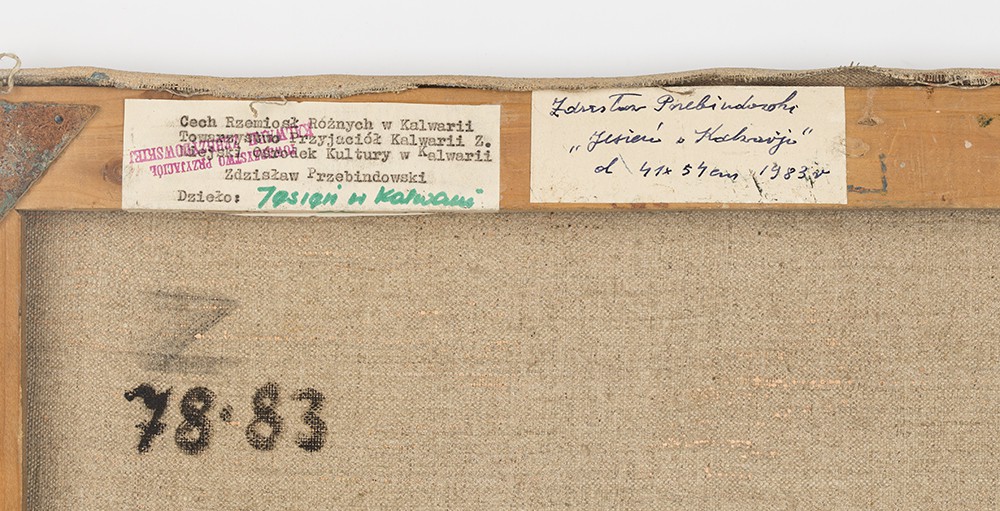 Cech Rzemiosł Różnych w Kalwarii
Towarzystwo Przyjaciół Kalwarii Z.
Miejski Ośrodek Kultury w Kalwarii
Zdzisław Przebindowski
Dzieło: Jesień w Kalwarii
TOWARZYSTWO PRZYJACIÓŁ
KALWARII ZEBRZYDOWSKIEJ
Zdzisław Przebindowski
„Jesień w Kalwarii"
41x54cm 1983 r
Z
78.83